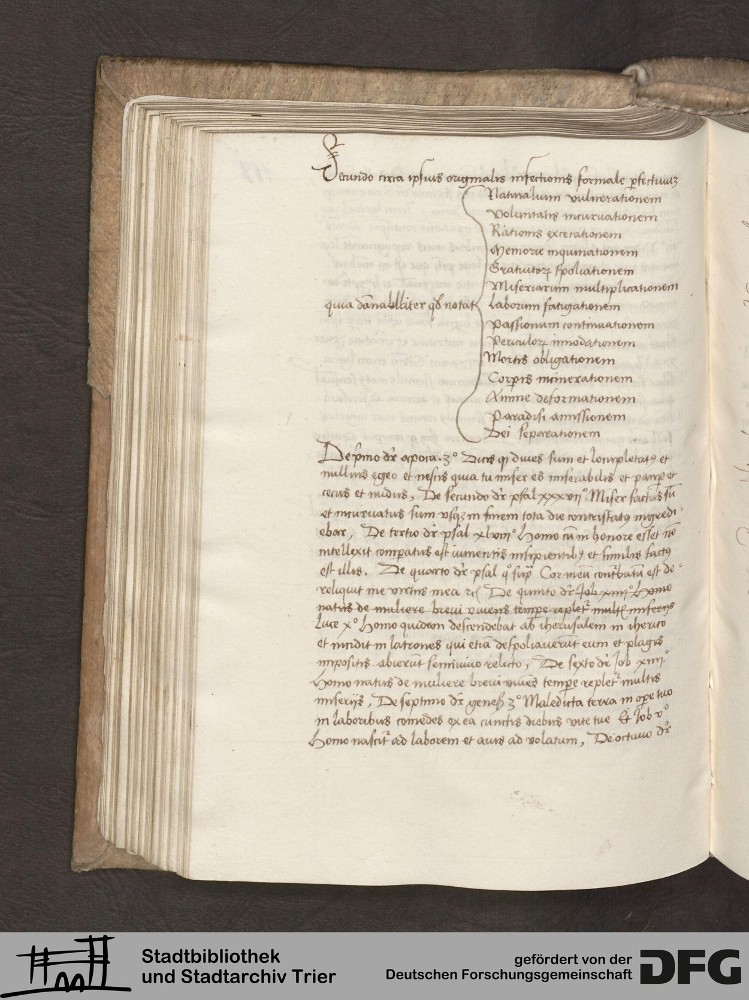 Secundo circa ipsius originalis infectionis formale
Naturalium vulnerationem
Voluntatis incurvationem
Rationis excecationem
Memorie inquinationem
Gratuitorꝝ spoliationem
Miseriarum multiplicationem
quia dānabiliter notat
Laborum fatigationem
Passionum continuationem
Periculorꝝ innodationem
Mortis obligationem
Corporis incinerationem
Anime deformationem
Paradisi amissionem
Dei separationem
De pͥmo dr̄ apoca. 3º Dicis qꝫ dives sum et locupletatꝰ et
nullius egeo et nescis quia tu miser es miserabilis et paup et
cecus et nudus, De secundo dr̄ psal xxxvii Miser factus sū
et incurvatus sum usqꝫ in finem tota die contristatꝰ ingredi
ebar, De tertio dr̄ psal xlviiiº Homo cū in honore esset nō
intellexit comparatus est iumentis insipientibꝰ et similis factꝰ
est illis. De quarto dr̄ psal qº supͣ Cor meū cont̄batū est de
reliquit me virtus mea De quinto dr̄ Job xiiiiº Homo
natus de muliere brevi vivens tempore replet᷑ mult miseriis
Luce xº Homo quidem descendebat ab iherusalem in iherico
et incidit in latrones qui etiā despoliaverūt eum et plagis
impositis abierūt semivivo relicto, De sexto dr̄ Job xiiiiº
Homo natus de muliere brevi vivēs tempore replet᷑ multis
miseriis, De septimo dr̄ genes 3º Maledicta terra in opere tuo
in laboribus comedes ex ea cunctis diebus vite tue Et Job vº
Homo nascit᷑ ad laborem et avis ad volatum, De octavo dr̄
Stadtbibliothek
und Stadtarchiv Trier
gefördert von der
Deutschen Forschungsgemeinschaft
DFG